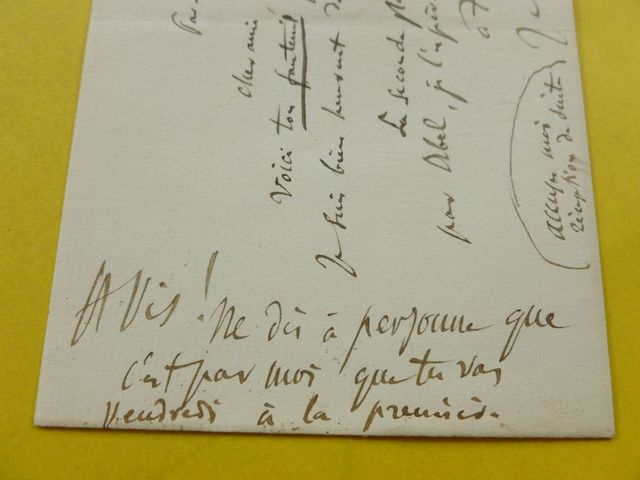 Pa
cher ami
Voici ton fauteuil
Je suis bien
La seconde
par Abel, j'espère
à
Je
accuse moi
réception de suite
Avis! Ne dis à personne que
c'est par moi que tu vas
vendredi à la première.